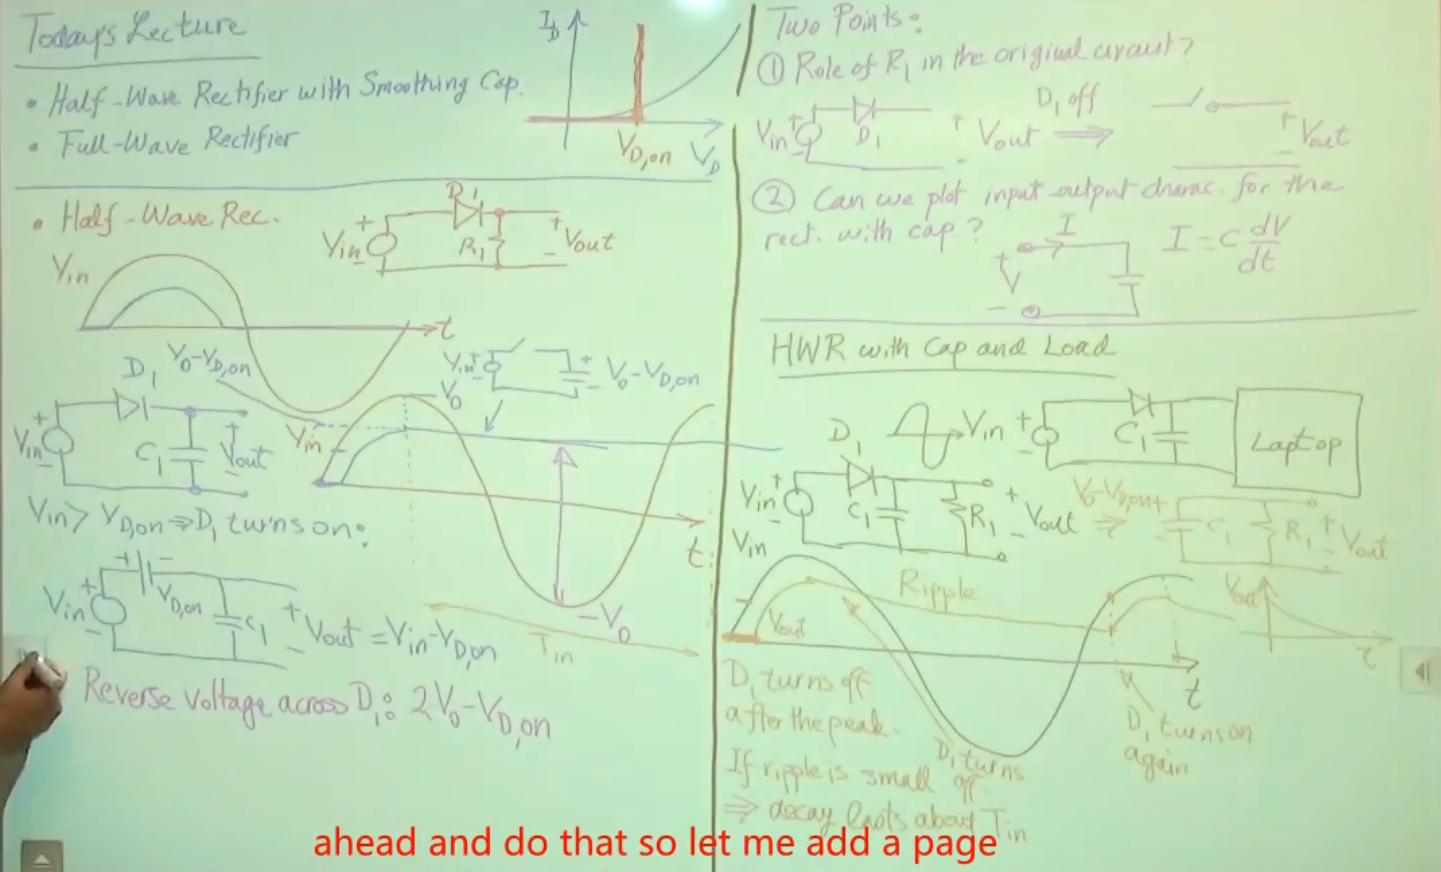 Today's Lecture
• Half-Wave Rectifier with Smoothing Cap.
• Full-Wave Rectifier
I_D
V_D,on
V_D
• Half-Wave Rec.
Vin
+
-
D1
R1
+
-
Vout
Vin
t
D1
V0-VD,on
Vin
+
-
C1
+
-
Vout
Vin
+
-
+
-
V0-VD,on
V0
Vin
t
-V0
Tin
Vin > VD,on ⇒ D1 turns on:
Vin
+
-
+
-
VD,on
C1
+
-
Vout = Vin-VD,on
Reverse voltage across D1: 2V0-VD,on
Two Points:
① Role of R1 in the original circuit?
Vin
+
-
D1
+
-
Vout
D1 off
⇒
+
-
Vout
② Can we plot input-output charac. for the
rect. with cap?
I
+
V
-
I = C dV/dt
HWR with Cap and Load
Vin
+
-
C1
Laptop
D1
Vin
+
-
C1
R1
+
-
Vout
⇒
V0-VD,out
C1
R1
+
-
Vout
Vin
Vout
Ripple
Vout
t
t
D1 turns off
after the peak.
D1 turns
off
D1 turns on
again
If ripple is small
⇒ decay lasts about Tin
ahead and do that so let me add a page